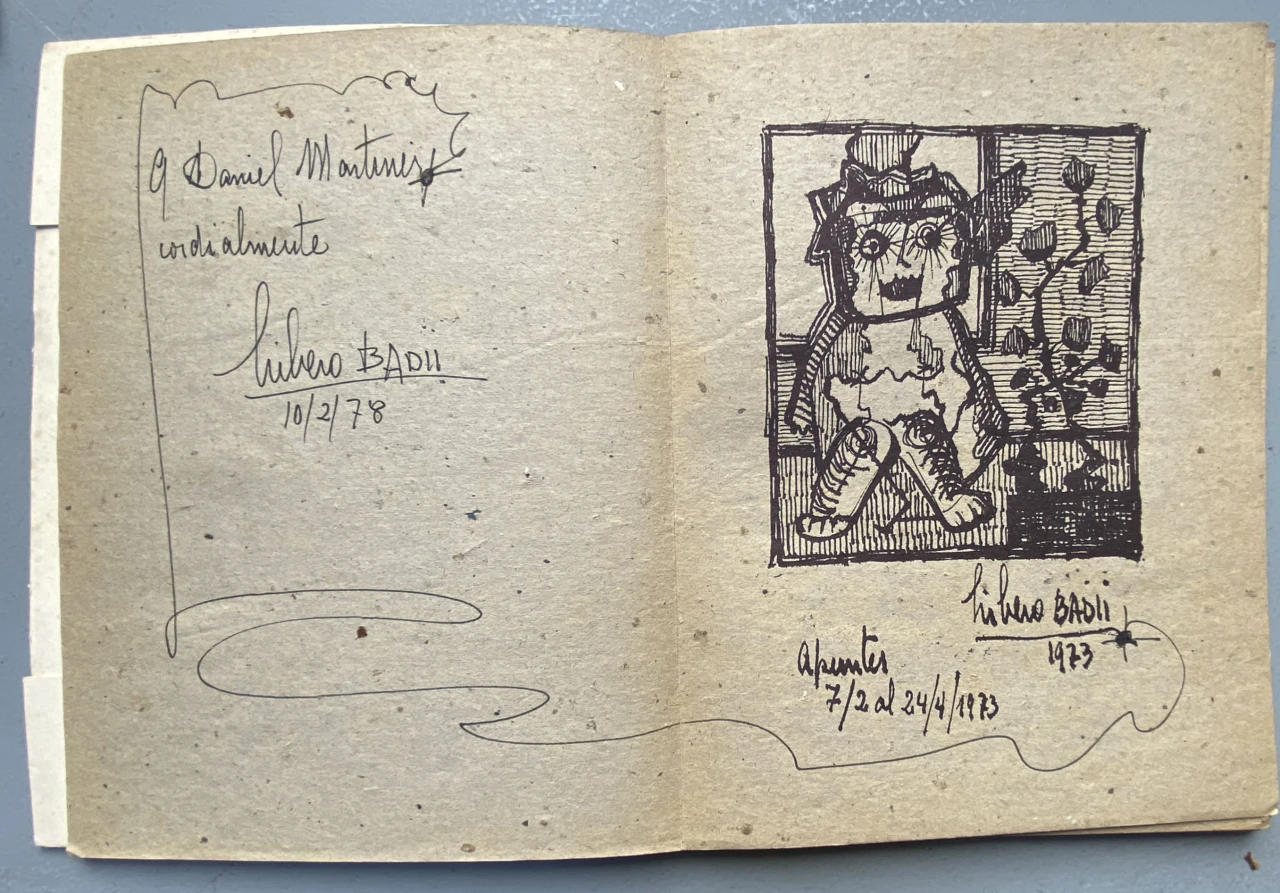 A Daniel Martinez
cordialmente
Líbero BADII
10/2/78
Líbero BADII
1973
Apuntes
7/2 al 24/4/1973